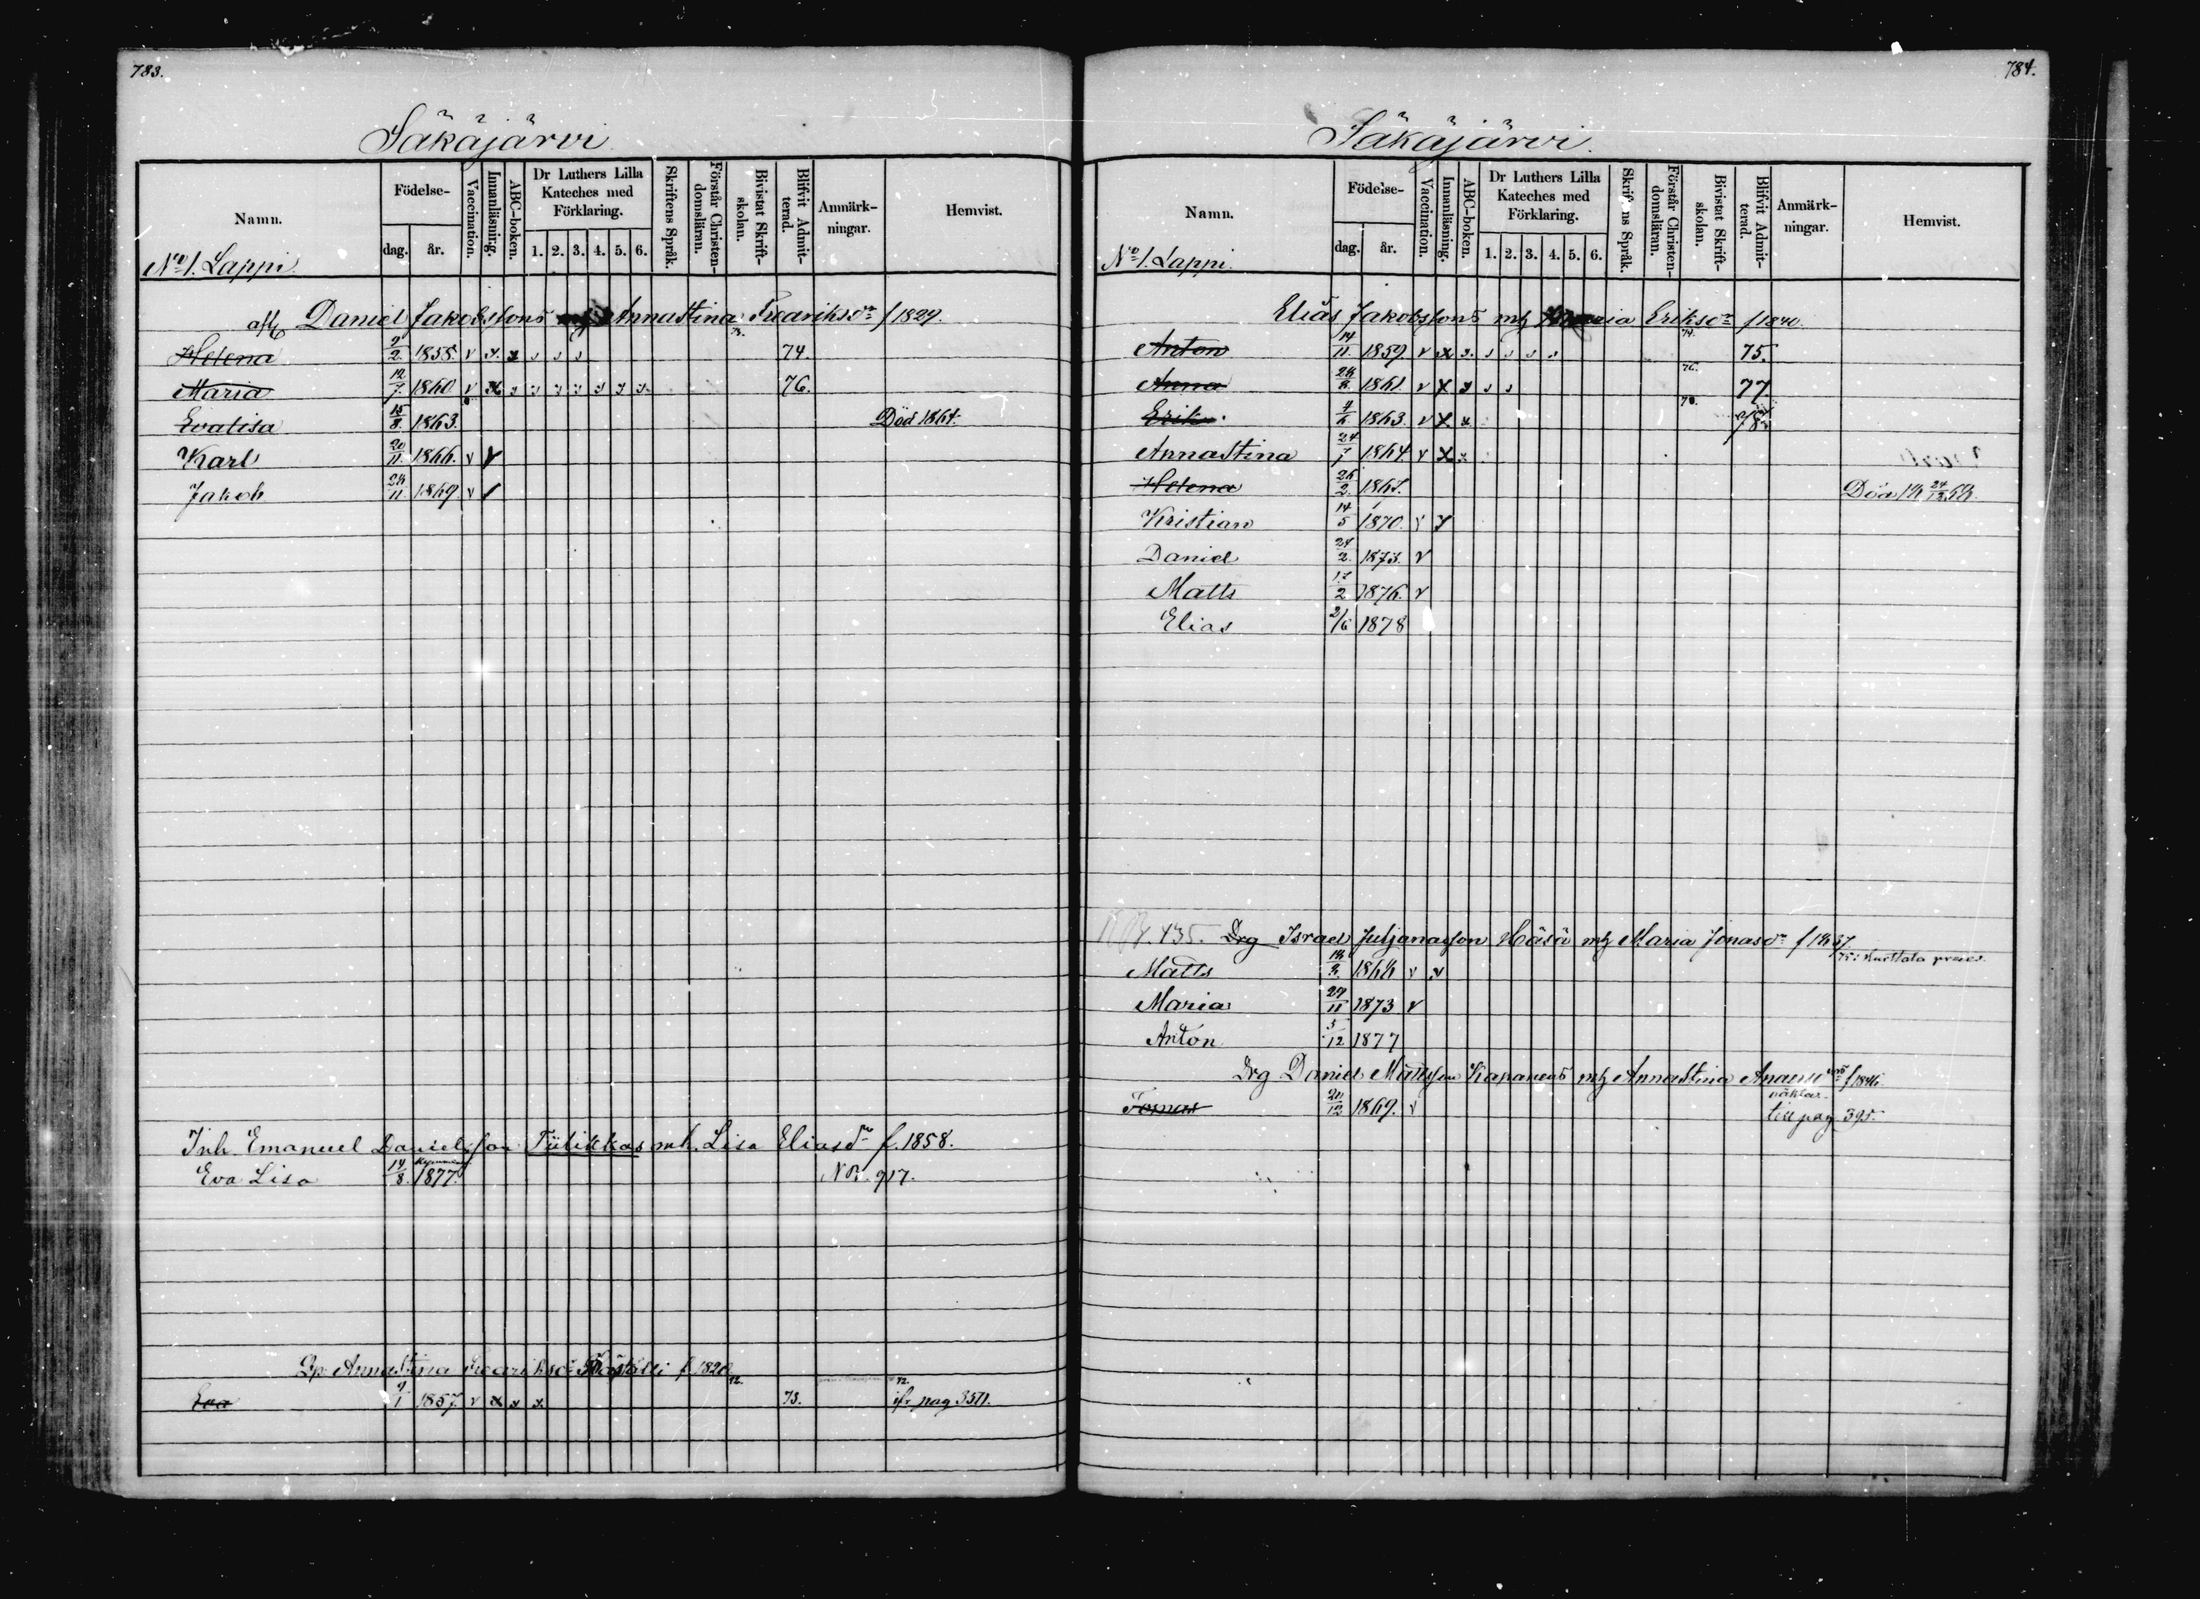 783.
Säkäjärvi
Namn.
Födelse-
dag.
år.
Vaccination.
Innanläsning.
ABC-boken.
Dr Luthers Lilla
Kateches med
Förklaring.
1. 2. 3. 4. 5. 6.
Skriftens Språk.
Förstår Christen-
domsläran.
Bivistat Skrift-
skolan.
Blifvit Admit-
terad.
Anmärk-
ningar.
Hemvist.
No 1. Lappi
Daniel Jakobssons Annastina Fredriksdr f 1829.
Helena 9/2 1858. v x. x 73. 74.
Maria 12/7 1860 v x 76.
Evalisa 15/8 1863. Död 1864.
Karl 20/11 1866. v v
Jakob 26/11 1869 v
Inh. Emanuel Danielsson Tiilikkas mh. Lisa Eliasdr f. 1858.
Eva Lisa 14/8 1877. NB. 917.
Annastina Fredriksdr f. 1820
Eva 9/1 1857. v x x x. 72. 73. fr pag 3511.
784.
Säkäjärvi.
Namn.
Födelse-
dag.
år.
Vaccination.
Innanläsning.
ABC-boken.
Dr Luthers Lilla
Kateches med
Förklaring.
1. 2. 3. 4. 5. 6.
Skriftens Språk.
Förstår Christen-
domsläran.
Bivistat Skrift-
skolan.
Blifvit Admit-
terad.
Anmärk-
ningar.
Hemvist.
No 1. Lappi.
Elias Jakobssons mh Maria Eriksdr f 1840.
Anton 14/11 1859. v x x. 74. 75.
Anna 1861. v x x 76. 77
Erik 4/6 1863. v x x. 78.
Annastina 24/7 1864 v x x
Helena 26/2. Död 24/12 68.
Kristian 14/5 1870. v
Daniel 24/2. 1873. v
Matts 17/2 1876. v
Elias 2/6 1878
435. Drg Israel mh Maria Jonasdr
Matts v v
Maria 27/11 1873 v
Anton 5/12 1877
Drg Daniel Mattsson Kapanens mh Annastina f 1846
Tomas 20/12 1869. v till pag 395.